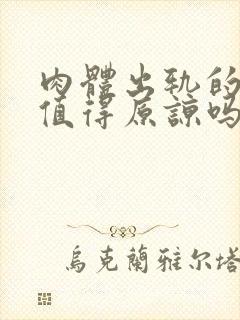 肉體出軌的
值得原諒吗
烏克蘭雅尔塔